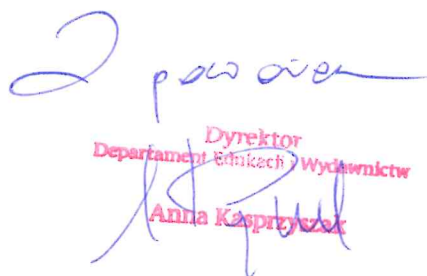 Z poważaniem
Dyrektor
Departament Edukacji i Wydawnictw
Anna Kasprzyszak